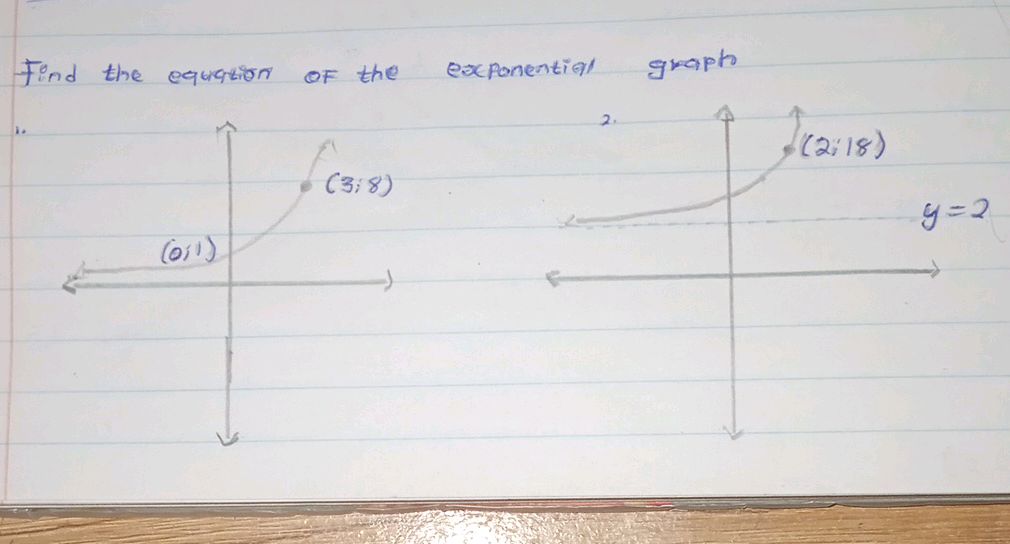 Find the equation OF the exponential graph
1.
2.
(2;18)
(3;8)
y = 2
(0;1)